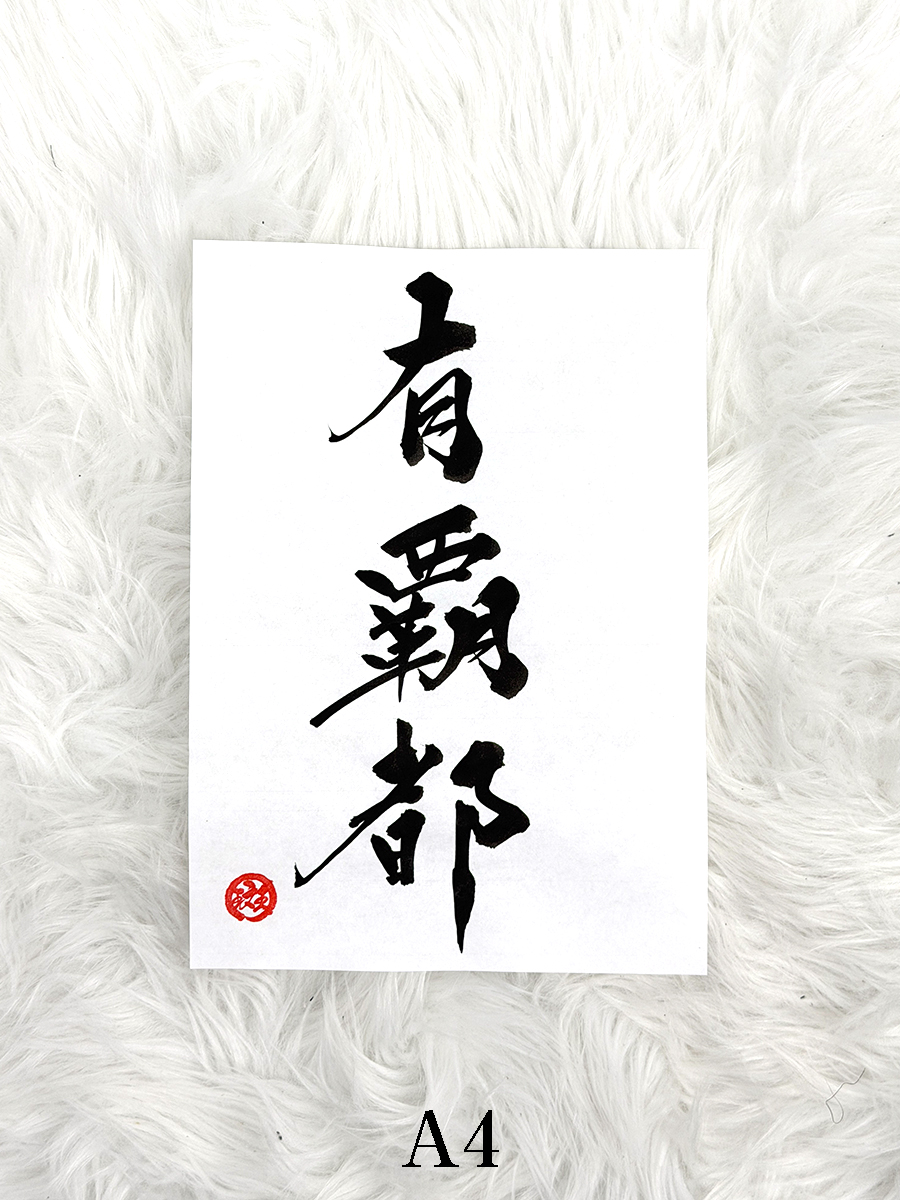 有覇都
A4